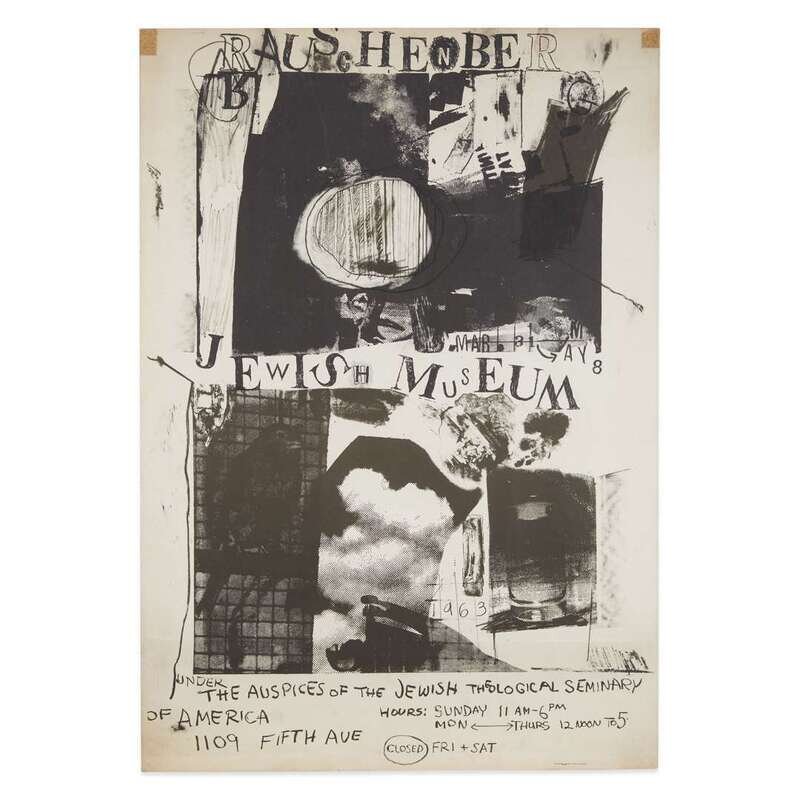 RAUSCHENBERG
R
MAR. 31 MAY 8
JEWISH MUSEUM
1963
UNDER
THE AUSPICES OF THE JEWISH THEOLOGICAL SEMINARY
OF AMERICA
HOURS: SUNDAY 11 AM-6PM
MON ⟷ THURS 12 NOON TO 5
1109 FIFTH AVE
CLOSED FRI + SAT